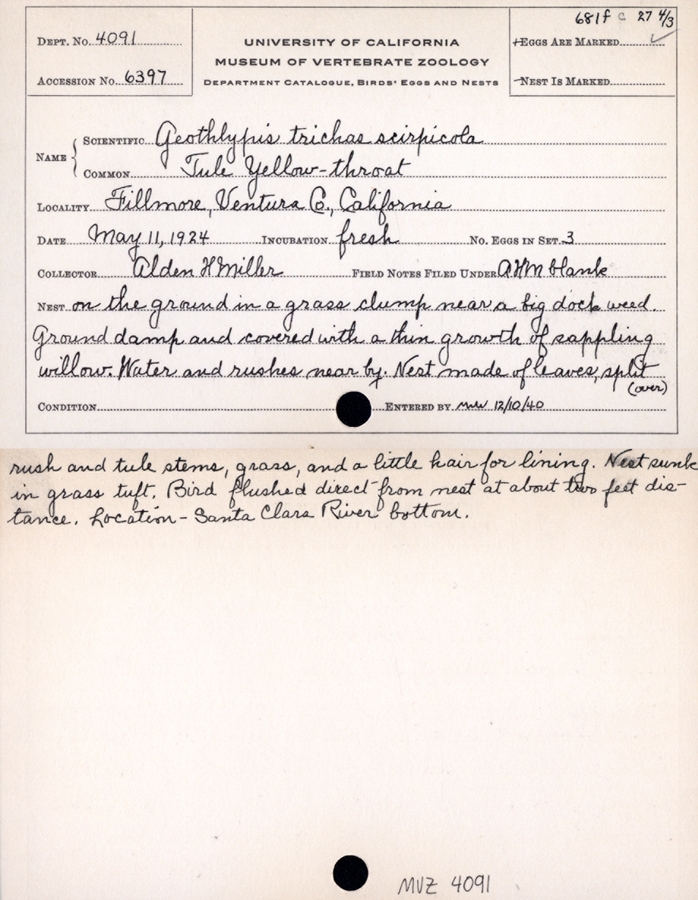 681f c 27 4/3
Dept. No. 4091
Accession No. 6397
UNIVERSITY OF CALIFORNIA
MUSEUM OF VERTEBRATE ZOOLOGY
Department Catalogue, Birds' Eggs and Nests
+Eggs Are Marked ✓
-Nest Is Marked
Name { Scientific Geothlypis trichas scirpicola
Common Tule Yellow-throat
Locality Fillmore, Ventura Co., California
Date May 11, 1924 Incubation fresh No. Eggs in Set 3
Collector Alden H Miller Field Notes Filed Under AHM blank
Nest on the ground in a grass clump near a big dock weed.
Ground damp and covered with a thin growth of sappling
willow. Water and rushes near by. Nest made of leaves, split
(over)
Condition Entered by 12/10/40
rush and tule stems, grass, and a little hair for lining. Nest sunk
in grass tuft. Bird flushed direct from nest at about two feet dis-
tance. Location - Santa Clara River bottom.
MVZ 4091